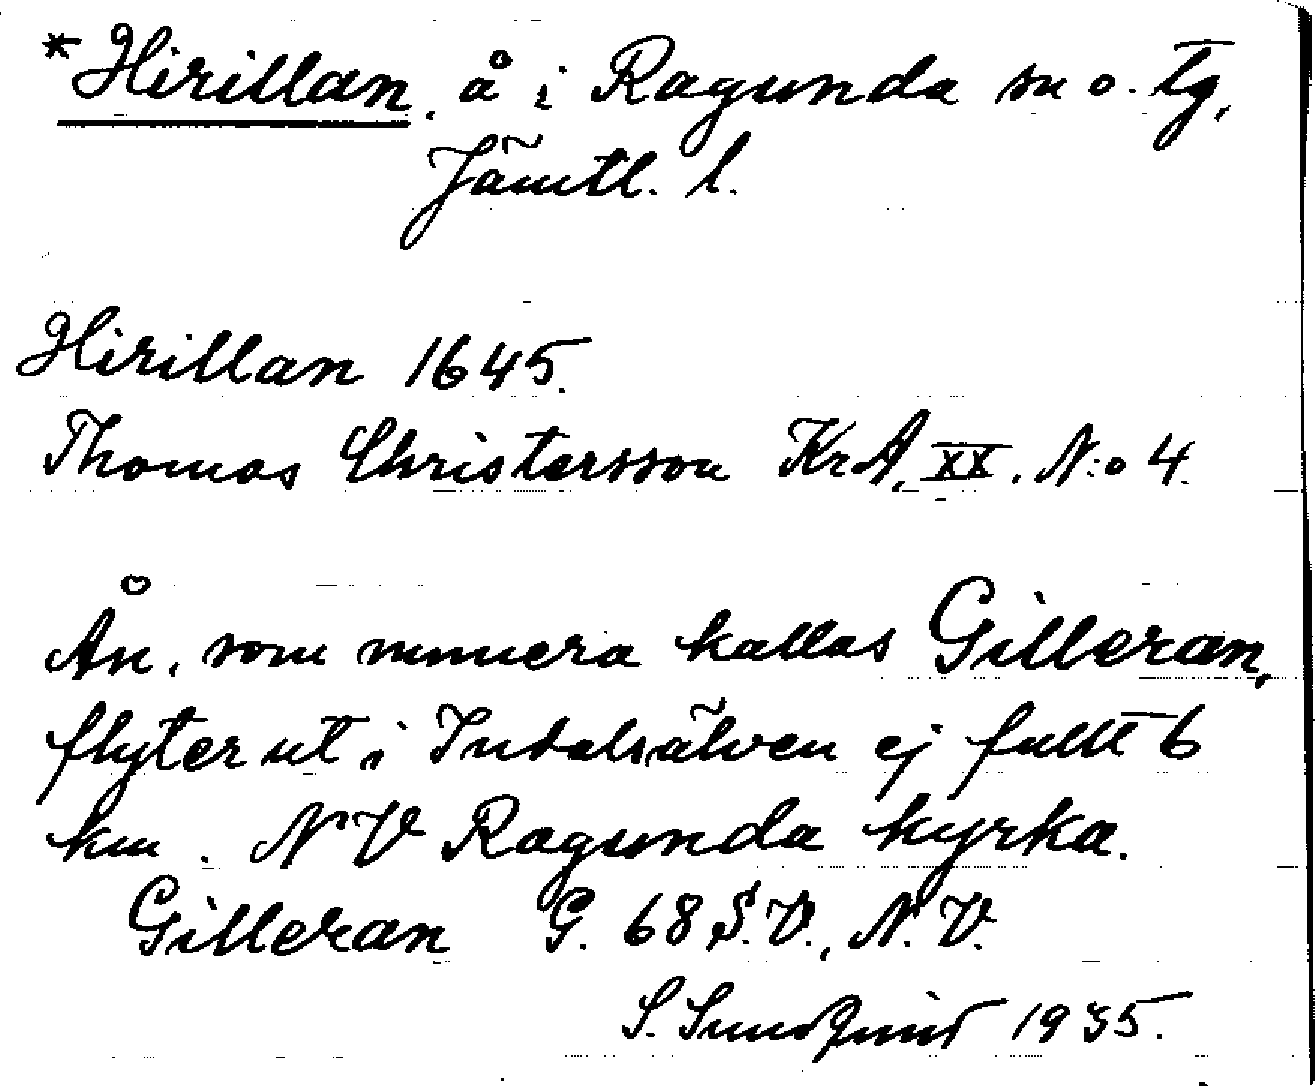 *Hirillan, å i Ragunda sn o. tg,
Jämtl. l.
Hirillan 1645.
Thomas Christersson KrA, XX. N:o 4.
Ån, som numera kallas Gilleran,
flyter ut i Indalsälven ej fullt 6
km. NV Ragunda kyrka.
Gilleran G. 68 S.V., N.V.
S. Sundquist 1935.